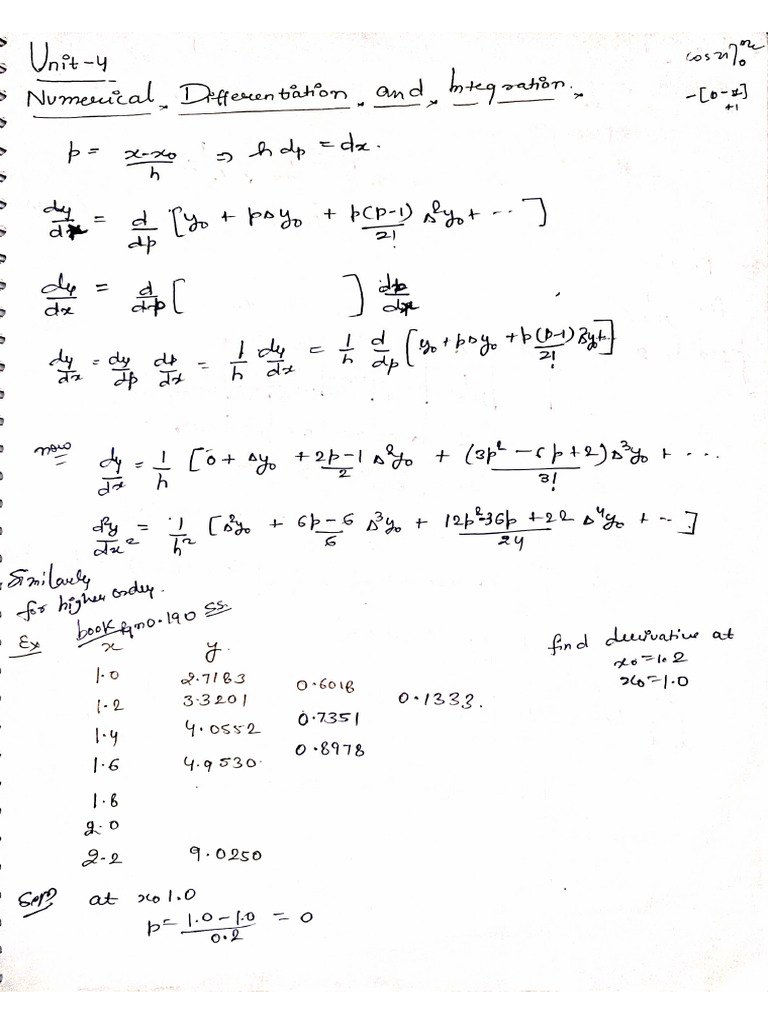 Unit-4
cos x]₀
-[0-x]
+1
Numerical Differentiation and Integration.
p = x-x₀/h ⇒ h dp = dx.
dy/dx = d/dp [y₀ + pΔy₀ + p(p-1)/2! Δ²y₀ + ...]
dy/dx = d/dp [ ] dp/dx
dy/dx = dy/dp dp/dx = 1/h dy/dx = 1/h d/dp [y₀ + pΔy₀ + p(p-1)/2!
now dy/dx = 1/h [0 + Δy₀ + 2p-1/2 Δ²y₀ + (3p²-6p+2)/3! Δ³y₀ + ...
d²y/dx² = 1/h² [Δ²y₀ + 6p-6/6 Δ³y₀ + 12p²-36p+22/24 Δ⁴y₀ + ...]
Similarly
for higher order.
Ex book pgno.190 SS.
find derivative at
x₀=1.2
x₀=1.0
x y
1.0 2.7183
0.6018
1.2 3.3201 0.1333.
0.7351
1.4 4.0552
0.8978
1.6 4.9530
1.8
2.0
2.2 9.0250
Soln at x₀ 1.0
p = 1.0-1.0/0.2 = 0